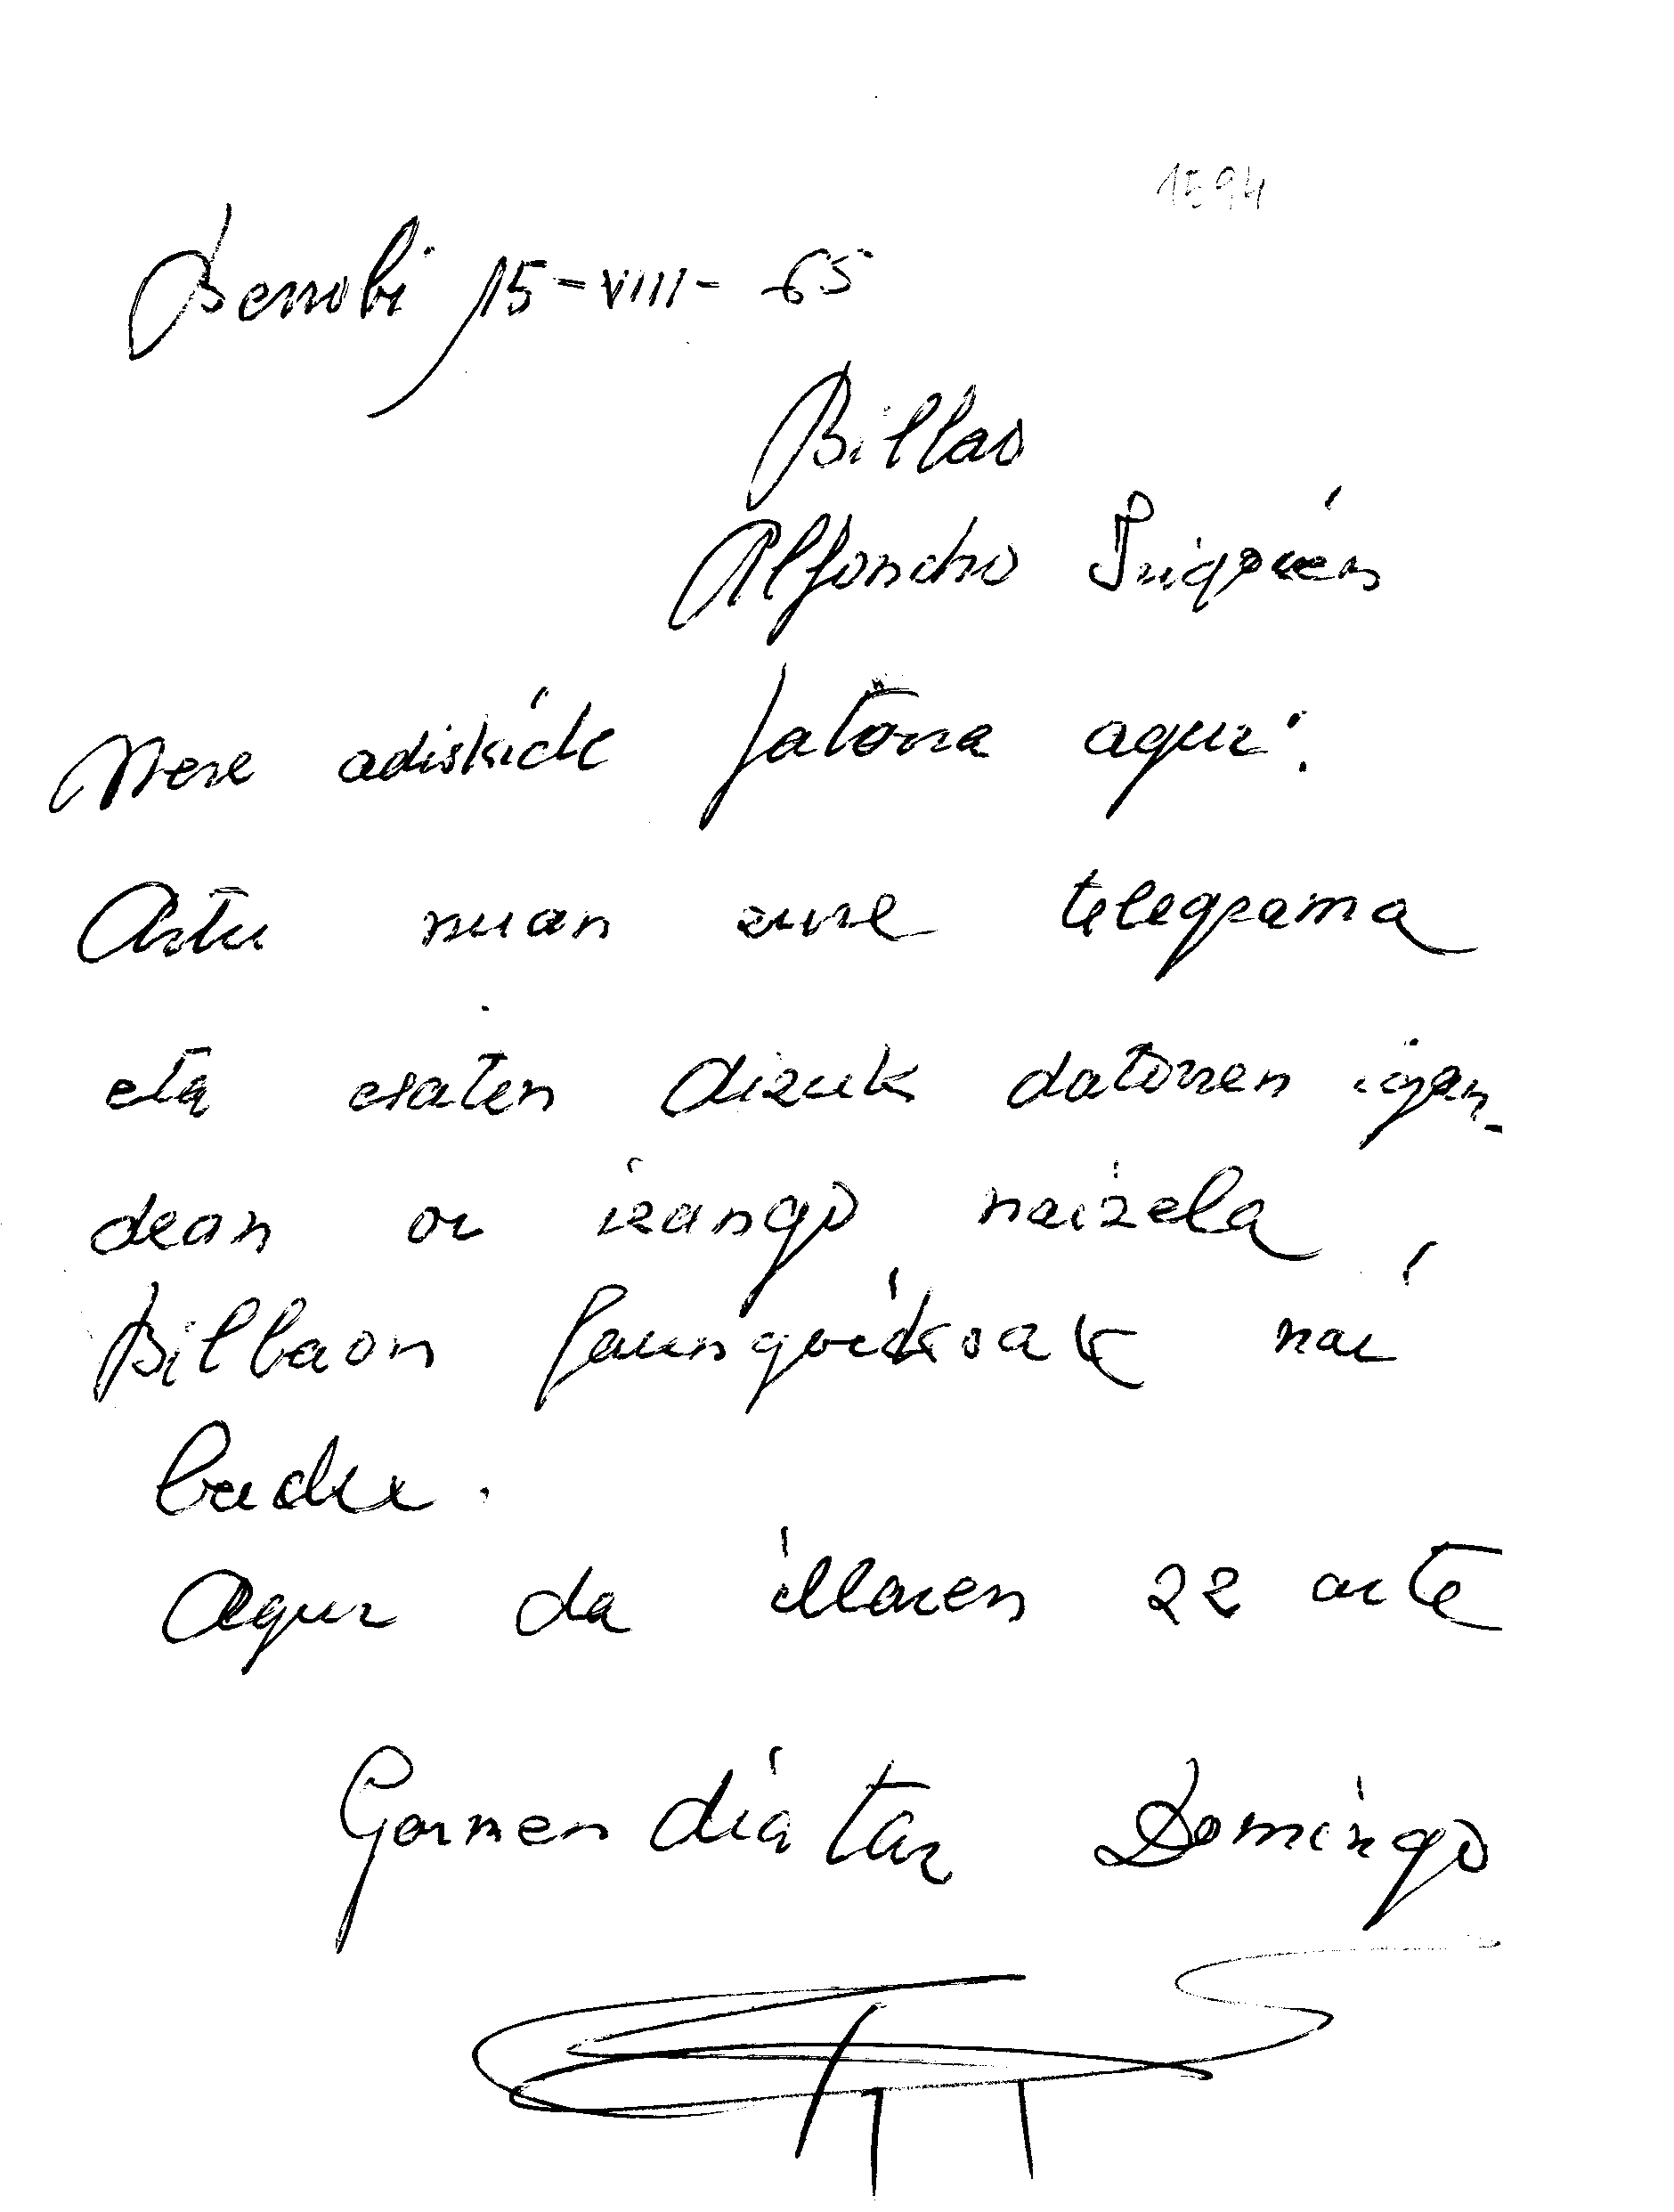 1594
Berrobi 15-VIII-65
Bilbao
Alfoncho Irigoien
Nere adiskide jatorra agur:
Artu nuan zure telegrama
eta esaten dizuk datorren igan-
dean or izango naizela
Bilbaon Jaungoikoak nai
badu.
Agur da illaren 22 arte
Garmendiatar Domingo